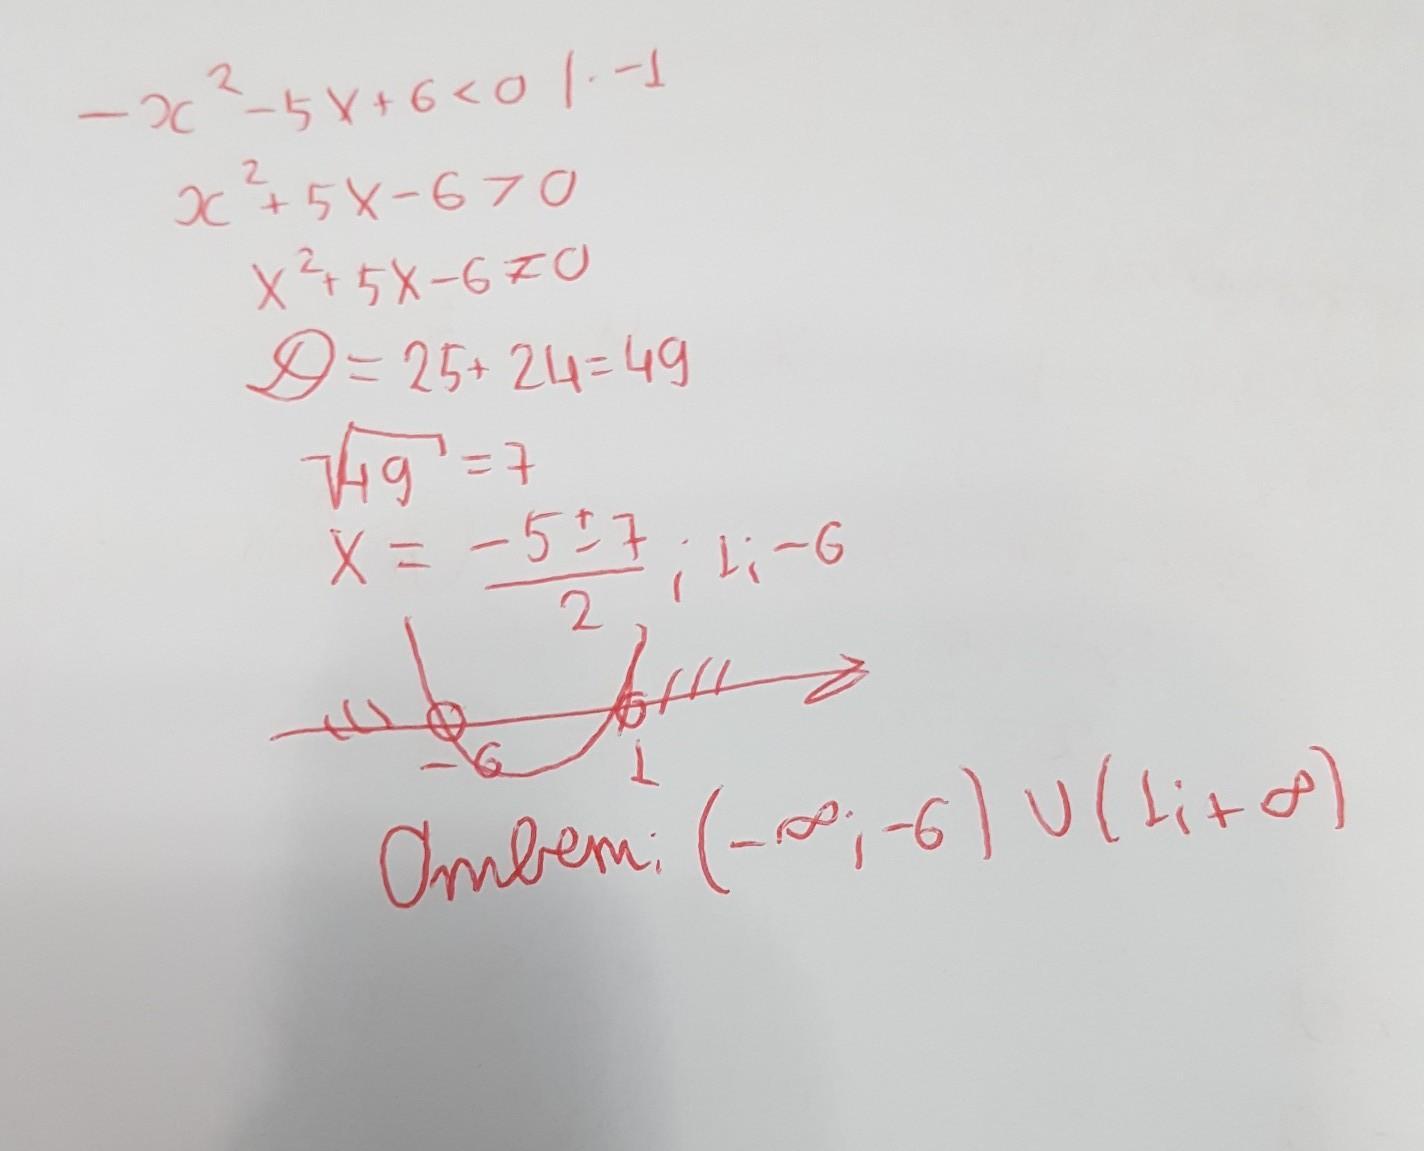 -x²-5x+6<0 |·-1
x²+5x-6>0
x²+5x-6=0
D=25+24=49
√49=7
x=(-5±7)/2; 1;-6
-6 1
Ответ: (-∞;-6)∪(1;+∞)